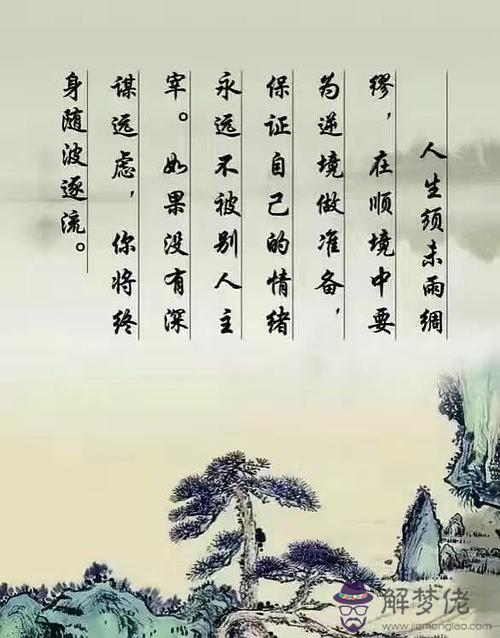 人生须未雨绸
缪，在顺境中要
为逆境做准备，
保证自己的情绪
永远不被别人主
宰。如果没有深
谋远虑，你将终
身随波逐流。
解梦佬
www.jiemenglao.com